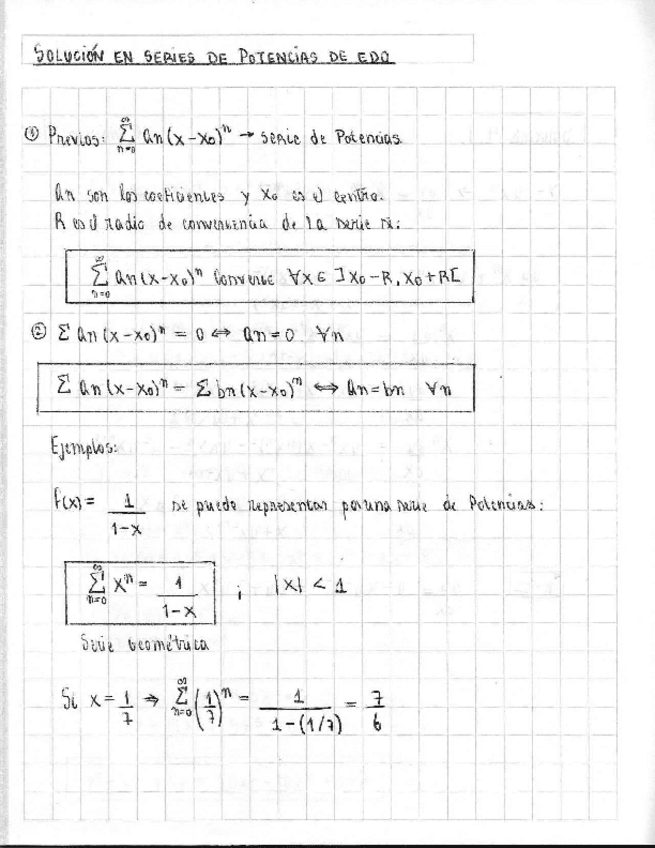 SOLUCIÓN EN SERIES DE POTENCIAS DE EDO
① Previos: ∞∑n=0 an(x-x₀)ⁿ → serie de Potencias
an son los coeficientes y x₀ es el centro.
R es el radio de convergencia de la serie si:
∞∑n=0 an(x-x₀)ⁿ converge ∀x ∈ ]x₀-R, x₀+R[
② ∑ an(x-x₀)ⁿ = 0 ⇔ an=0 ∀n
∑ an(x-x₀)ⁿ = ∑ bn(x-x₀)ⁿ ⇔ an=bn ∀n
Ejemplos:
f(x) = 1/(1-x) se puede representar por una serie de Potencias:
∞∑n=0 xⁿ = 1/(1-x) ; |x| < 1
Serie Geométrica
Si x = 1/7 ⇒ ∞∑n=0 (1/7)ⁿ = 1/(1-(1/7)) = 7/6